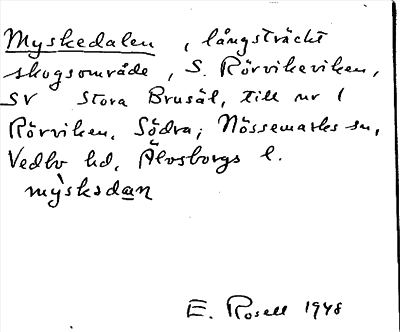 Myskedalen, långsträckt
skogsområde, S. Rörvikeviken,
SV Stora Brusäl, till nr 1
Rörviken, Södra; Nössemarks sn,
Vedbo hd, Älvsborgs l.
mỳskədan
E. Rosell 1948